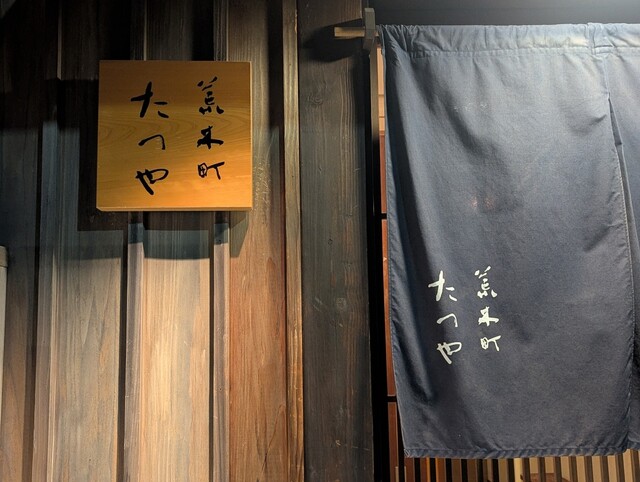 荒木町
たつや
荒木町
たつや